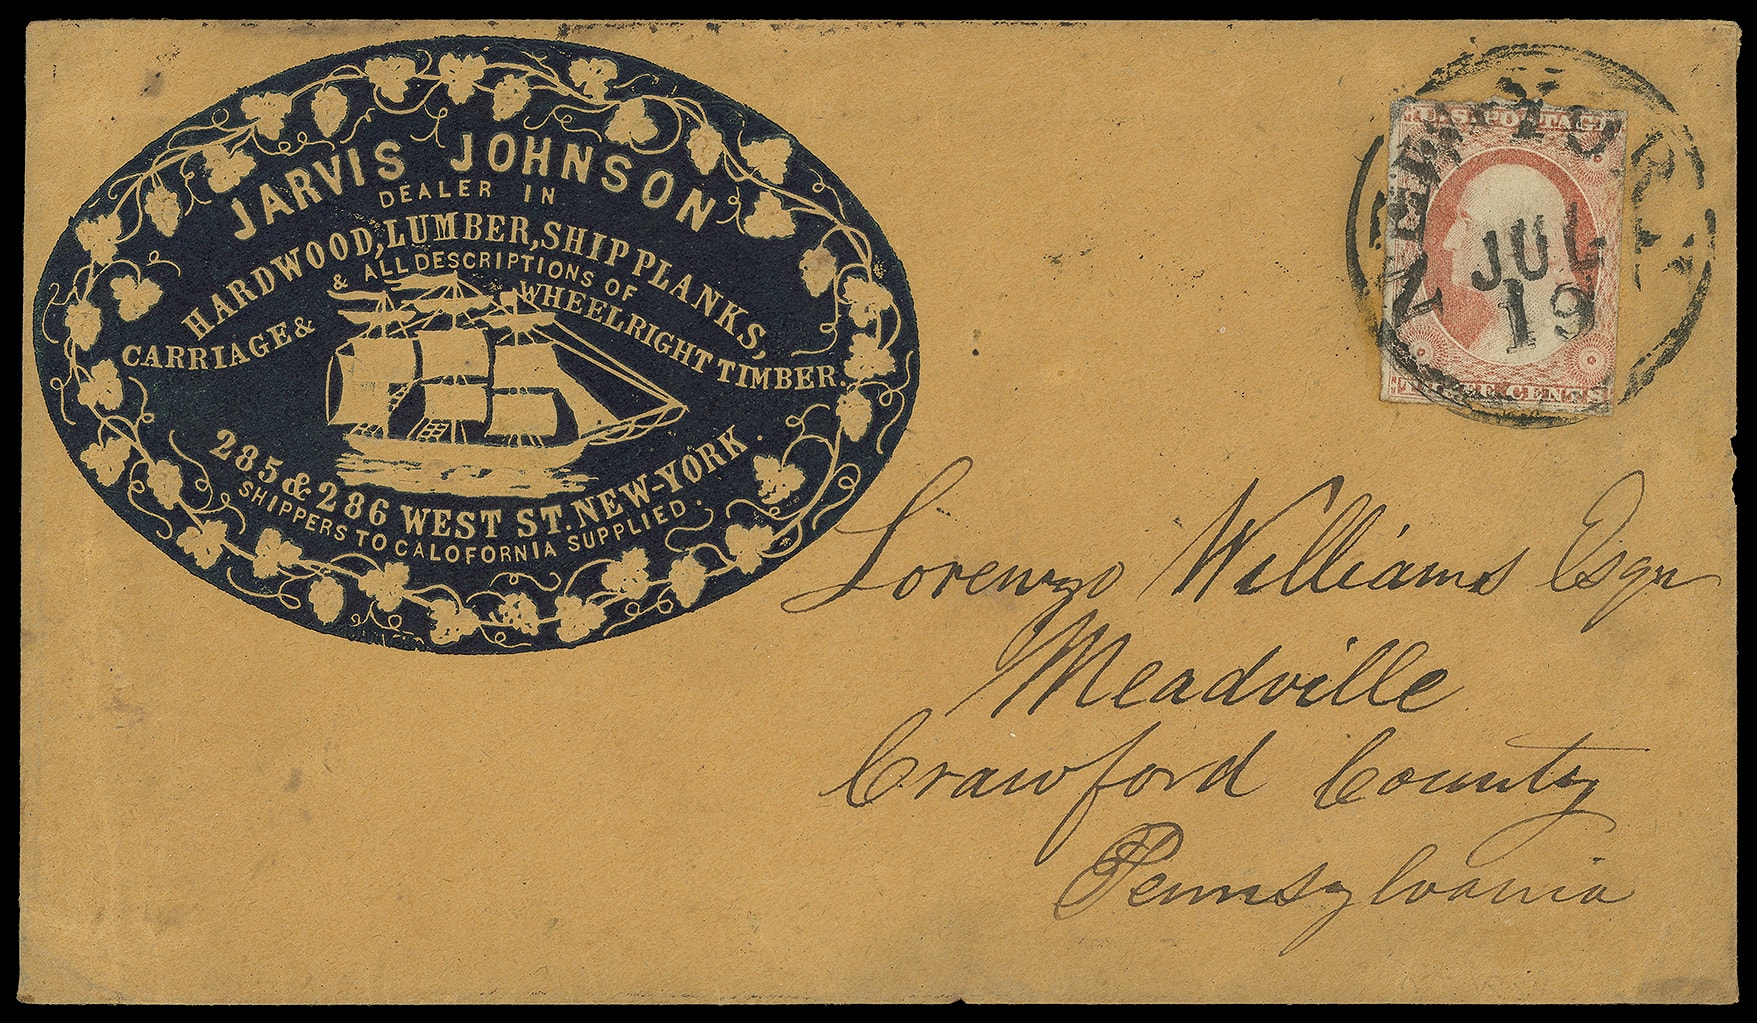 JARVIS JOHNSON
DEALER IN
HARDWOOD, LUMBER, SHIP PLANKS,
& ALL DESCRIPTIONS OF
CARRIAGE & WHEELRIGHT TIMBER.
285 & 286 WEST ST. NEW-YORK.
SHIPPERS TO CALOFORNIA SUPPLIED.
U.S. POSTAG
NEW YORK
JUL
19
THREE CENTS
Lorenzo Williams Esqr
Meadville
Crawford County
Pennsylvania